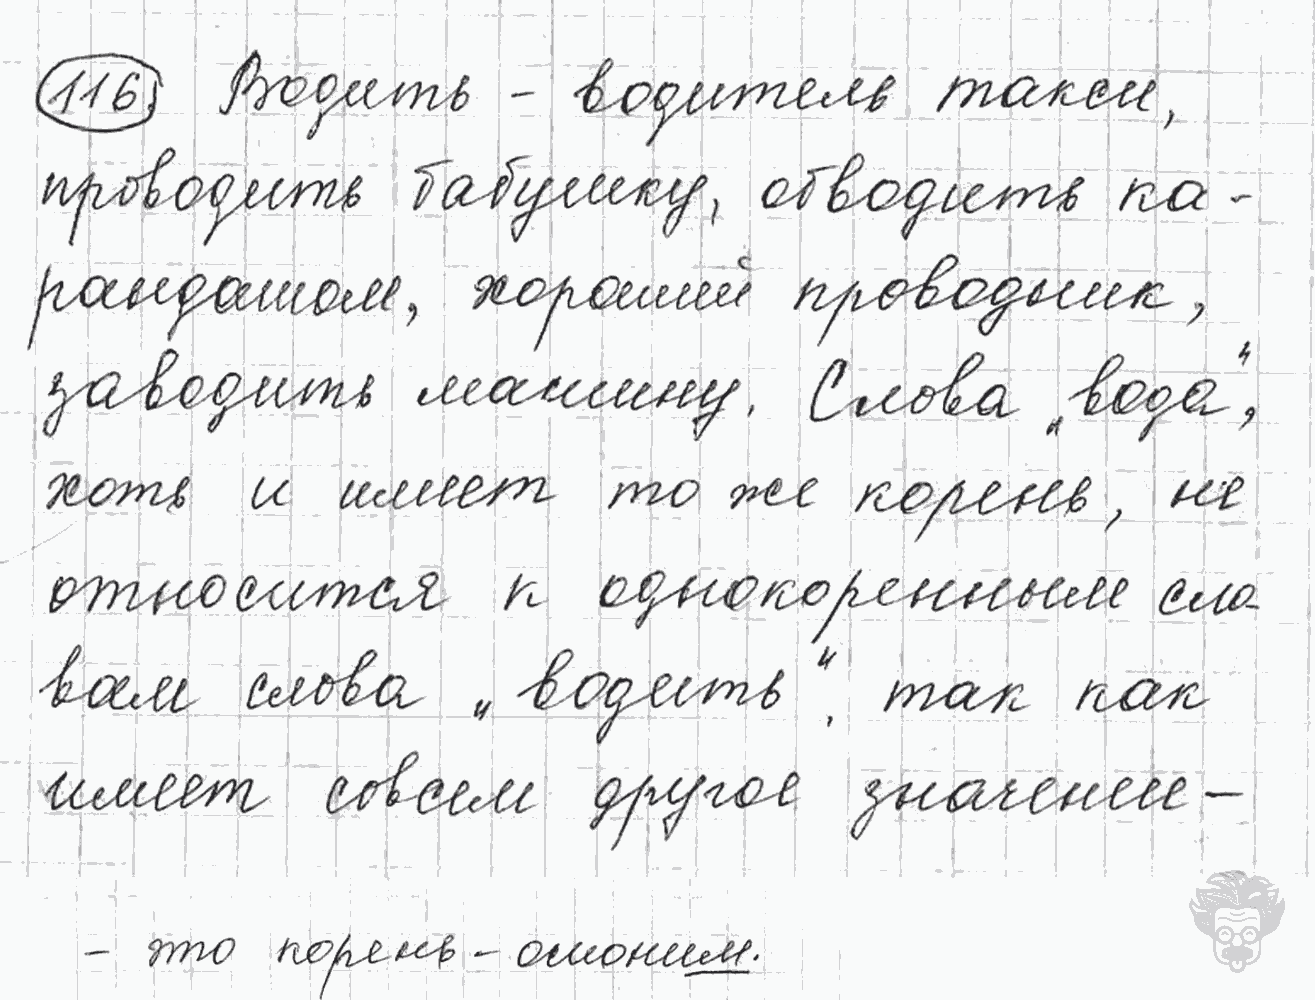 116. Водить - водитель такси,
проводить бабушку, обводить ка-
рандашом, хороший проводник,
заводить машину. Слова „вода",
хоть и имеет то же корень, не
относится к однокоренным сло-
вам слова „водить", так как
имеет совсем другое значение -
- это корень - омоним.